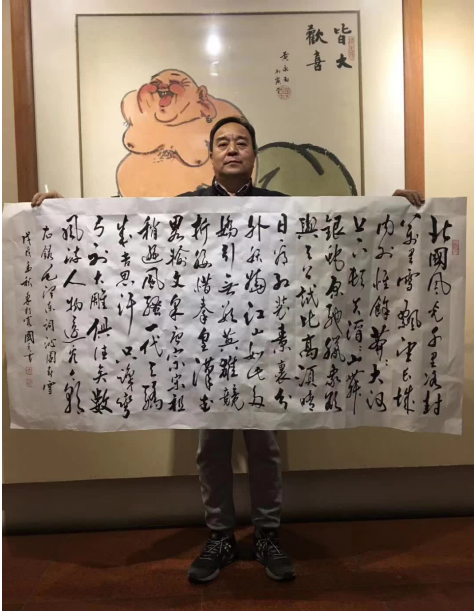 皆大
歡喜
北國風光千里冰封
萬里雪飄望長城
内外惟餘莽莽大河
上下頓失滔滔山舞
銀蛇原馳蠟象欲
與天公試比高須晴
日看紅裝素裹分
外妖嬈江山如此多
嬌引無數英雄競
折腰惜秦皇漢武
略輸文采唐宗宋祖
稍遜風騷一代天驕
成吉思汗只識彎
弓射大雕俱往矣數
風流人物還看今朝
右録毛澤東詞沁園春雪
戊戌年秋